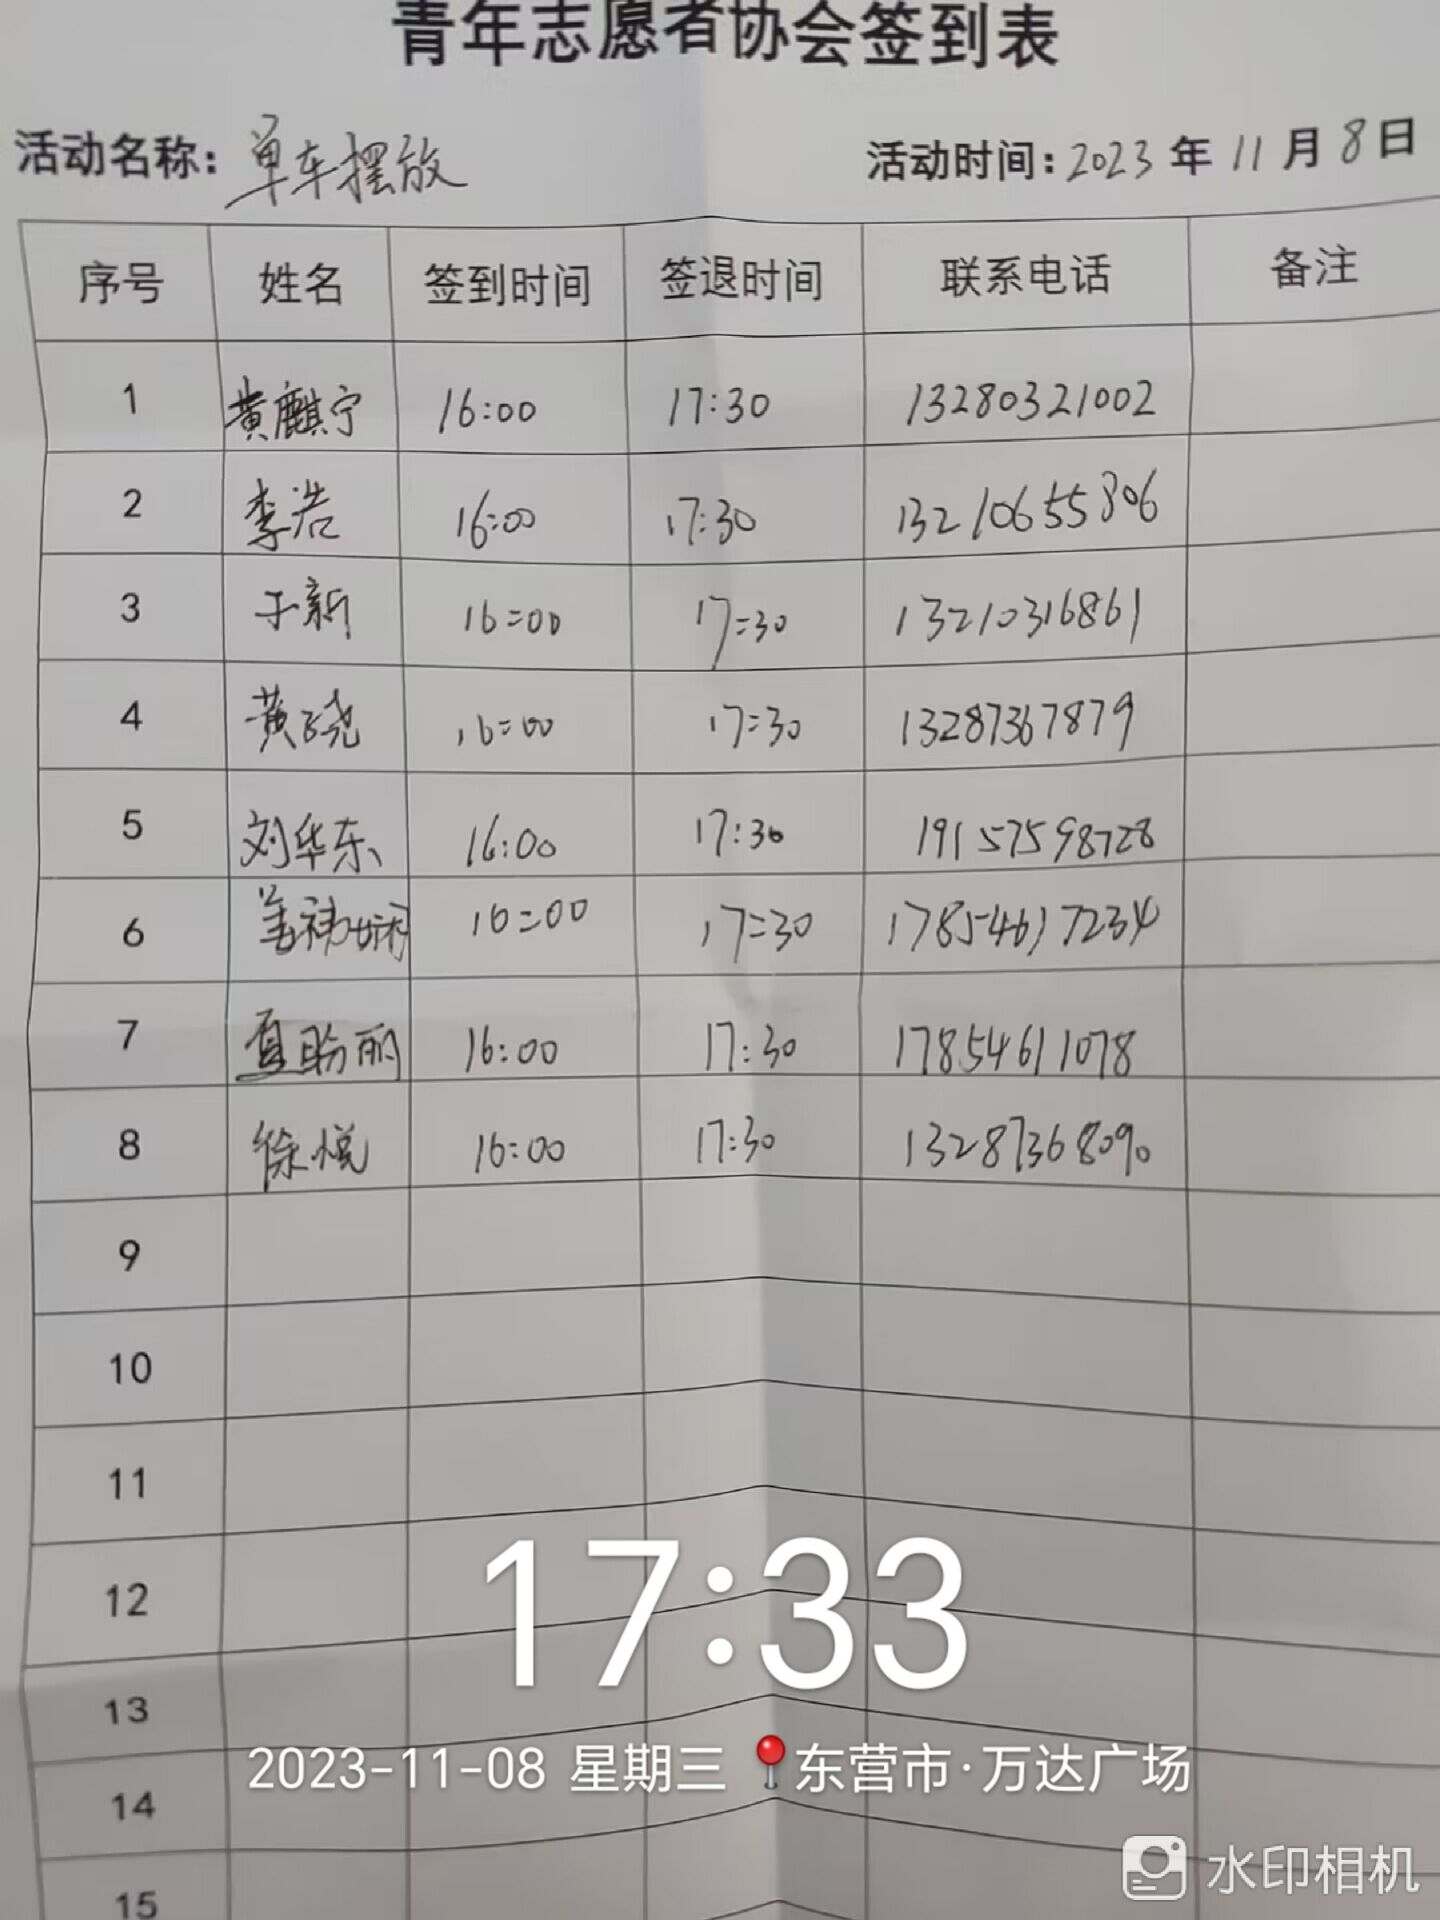 青年志愿者协会签到表
活动名称：单车摆放 活动时间：2023年11月8日
序号 姓名 签到时间 签退时间 联系电话 备注
1 黄麒宁 16:00 17:30 13280321002
2 李浩 16:00 17:30 13210655806
3 于新 16:00 17:30 13210316861
4 黄子晓 16:00 17:30 13287367879
5 刘华东 16:00 17:30 19157598728
6 16:00 17:30 17854617234
7 夏盼丽 16:00 17:30 17854611078
8 徐悦 16:00 17:30 13287368090
9
10
11
12
13
14
15
17:33
2023-11-08 星期三 东营市·万达广场
水印相机